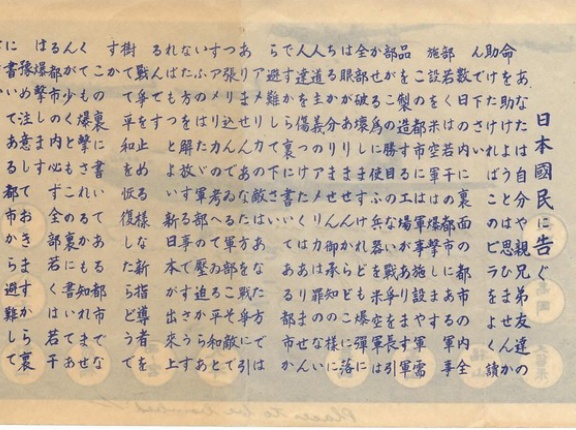 日本國民に告ぐ
あなたは自分や親兄弟友達の
命を助けようとは思ひませんか
助けたければこのビラをよく讀
んで下さい
数日の内に裏面の都市の内全
部若くは若干の都市にある軍事
施設を米空軍は爆撃します
この都市には軍事施設や軍需
品を製造する工場があります軍
部がこの勝目のない戦争を長引
かせる為に使ふ兵器を米空軍は
全部破壊しますけれども爆弾に
は眼がありませんからどこに落
ちるか分りません御承知の様に
人道主義のアメリカは罪のない
人達を傷つけたくはありません
ですから裏に書いてある都市か
ら避難して下さい
アメリカの敵はあなた方では
ありませんあなた方を戦争に引
張り込んでゐる軍部こそ敵で
すアメリカの考へてゐる平和と
いふのはたゞ軍部の壓迫からあ
なた方を解放する事ですさうす
ればもつとよい新日本が出來上
るんです
戦争を止める様な新指導者を
樹てて平和を恢復したらどうで
すか
この裏に書いてある都市でな
くても爆撃されるかも知れませ
んが少くともこの裏に書いてあ
る都市の内必ず全部若くは若干
は爆撃します
豫め注意しておきますから裏
に書いてある都市から避難し